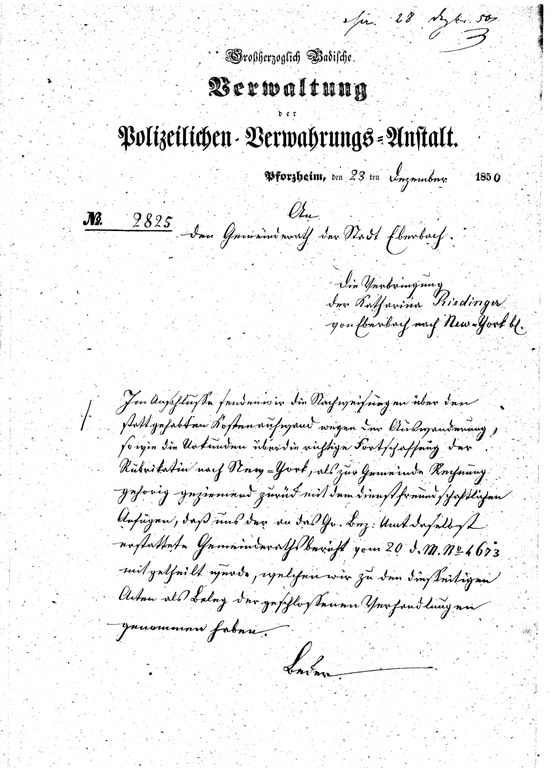 28 Dezbr. 50
Großherzoglich Badische
Verwaltung
der
Polizeilichen-Verwahrungs-Anstalt.
Pforzheim, den 23 ten Dezember 1850
An
№ 2825 den Gemeinderath der Stadt Eberbach.
Die Verbringung
der Katharina Riedinger
von Eberbach nach New-York bt.
Im Anschlusse senden wir die Nachweisungen über den
statt gehabten Kostenaufwand wegen der Auswanderung,
sowie die Urkunden über die richtige Fortschaffung der
Rubrikatin nach New-York, als zur Gemeinde Rechnung
gehörig geziemend zurück mit dem dienstfreundschaftlichen
Anfügen, daß uns der an das Gr. Bez: Amt daselbst
erstattete Gemeinderathsbericht vom 20 d. M. № 4673
mitgetheilt wurde, welchen wir zu den diesseitigen
Acten als Beleg der geschlossenen Verhandlungen
genommen haben.